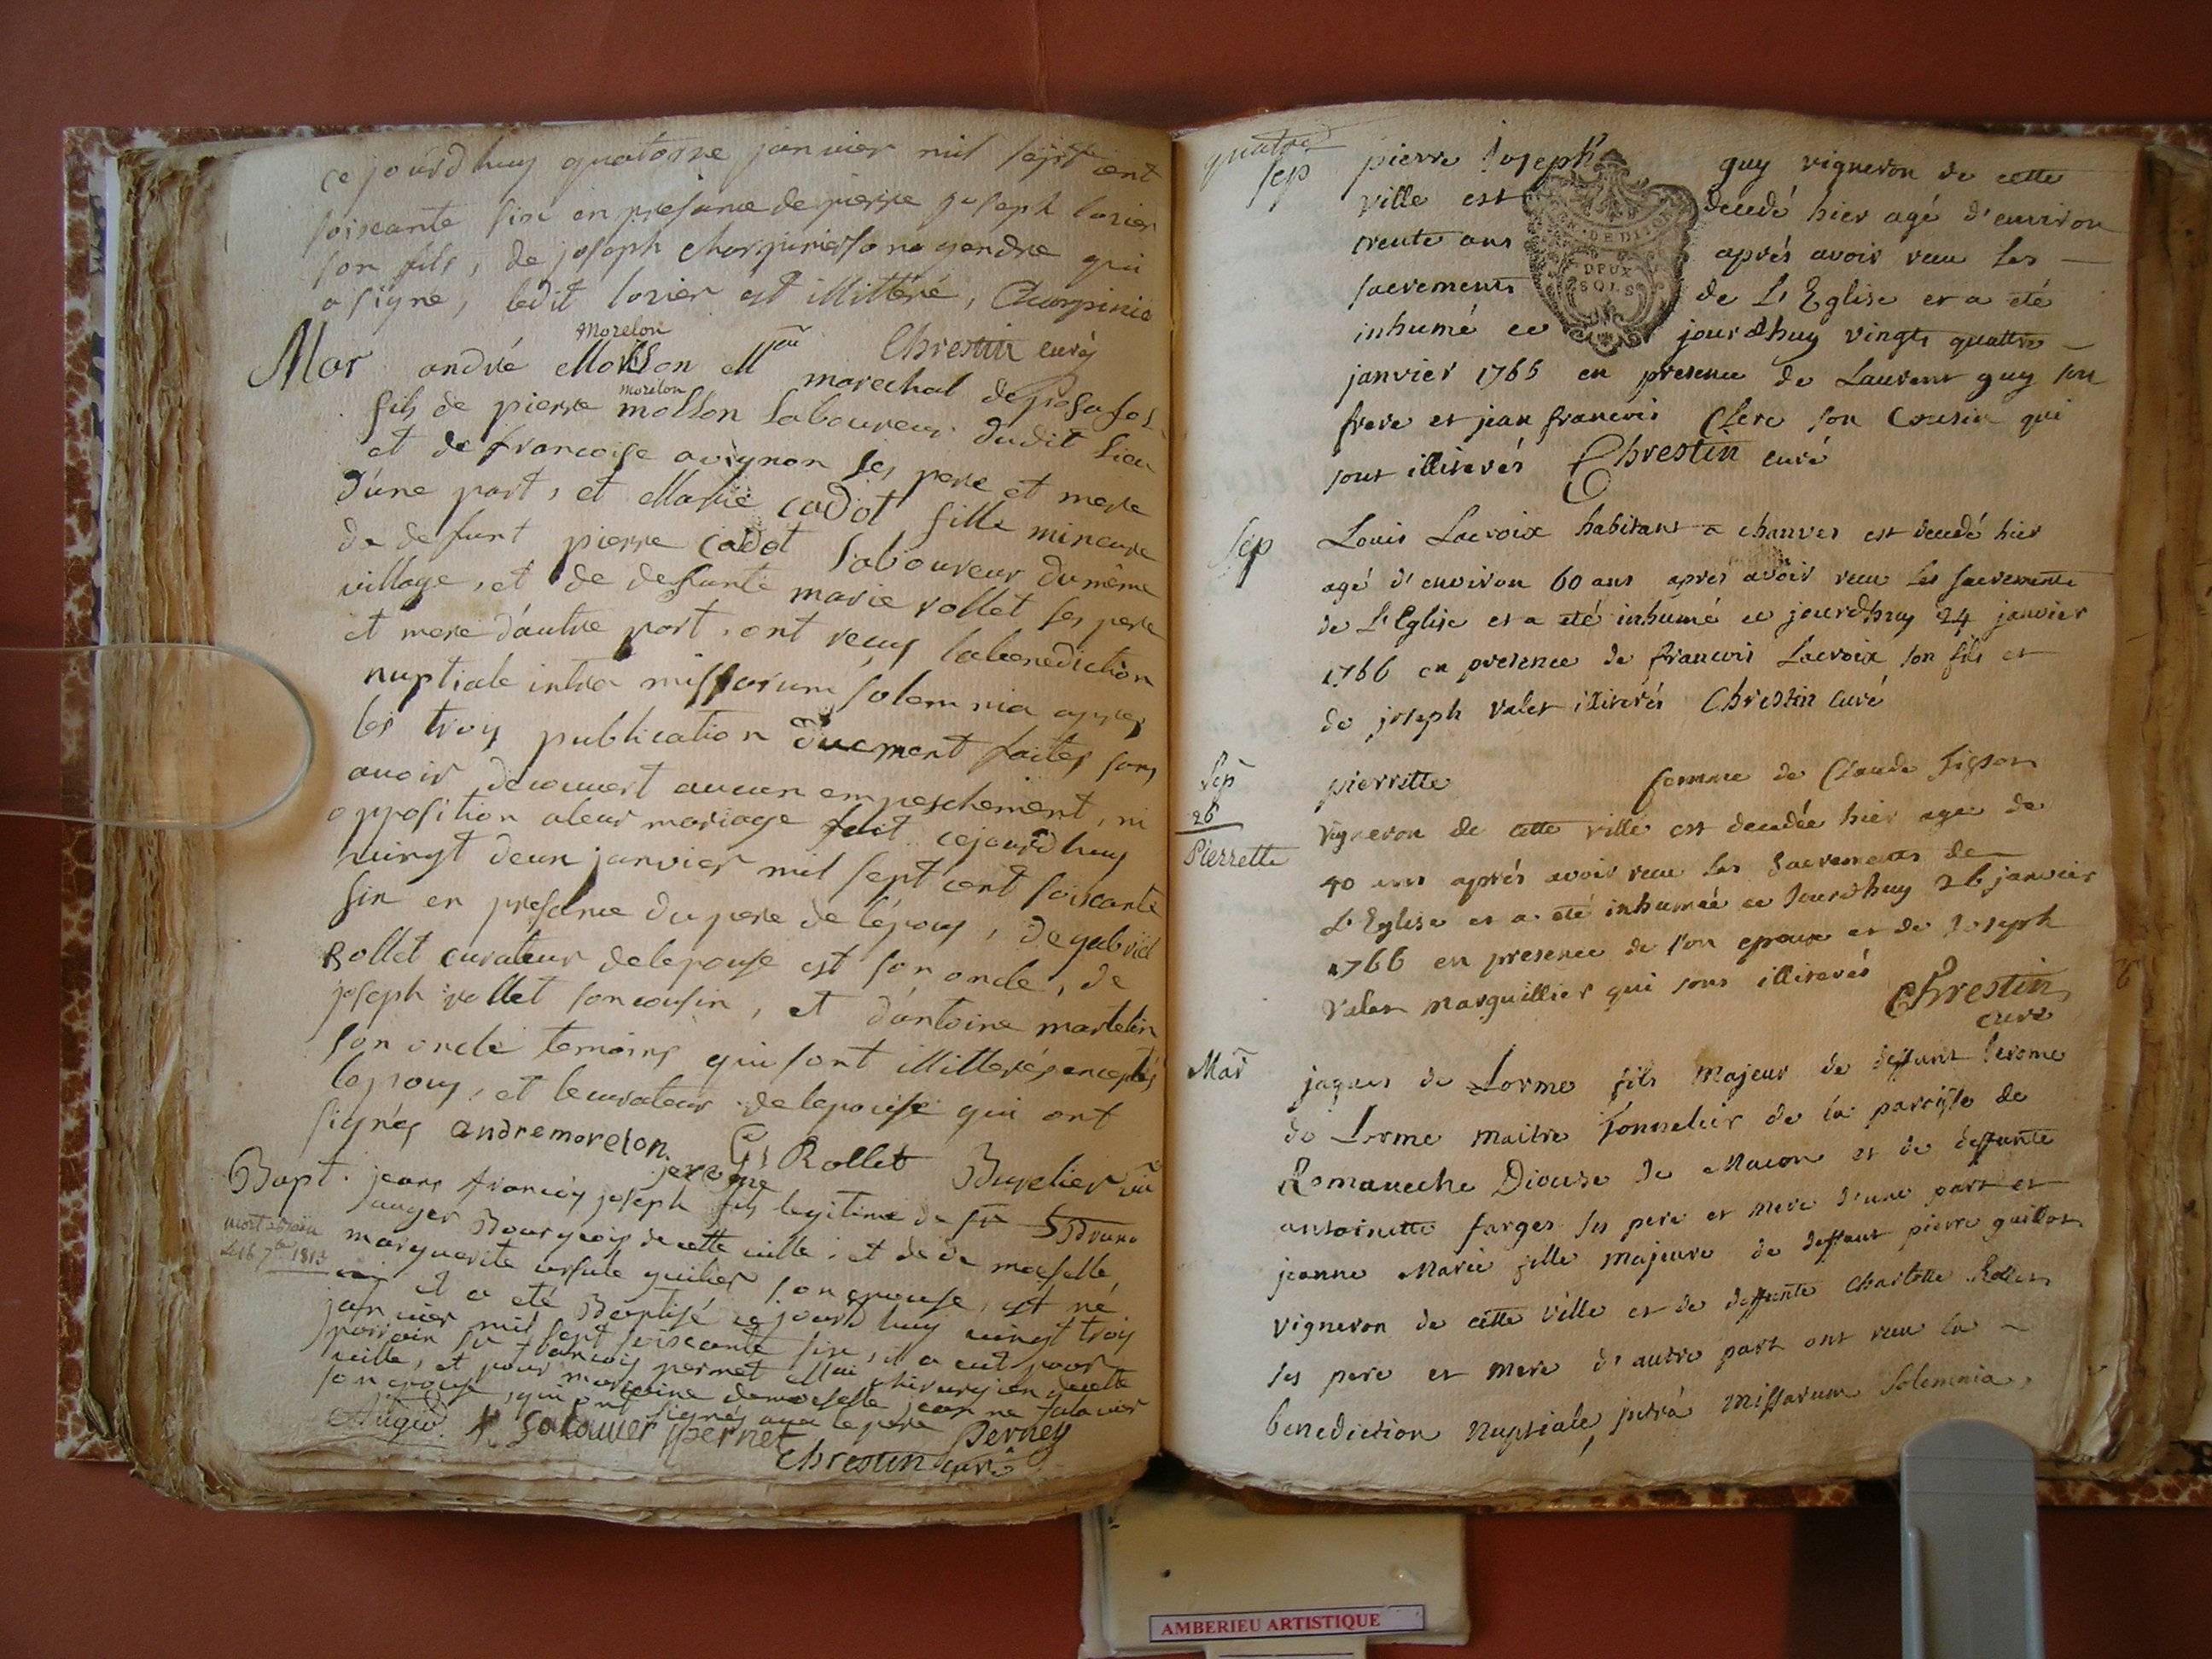 ce jourd'huy quatorze janvier mil sept cent
soiscante six en presance de pierre joseph lozier
son fils, de joseph charpinier son gendre qui
a signé, ledit lozier est illittéré, Charpinie
Chrestin curé
Morelon
Mar andré Mollon M marechal de
morelon
fils de pierre mollon laboureur dudit lieu
et de francoise avignon ses pere et mere
d'une part, et Marie cadot fille mineure
de defunt pierre cadot laboureur du même
village, et de defunte marie rollet ses pere
et mere d'autre part, ont reçus la benediction
nuptiale intra missarum solemnia apres
les troy publication duement faites sans
avoir decouvert aucun empeschement, ni
opposition a leur mariage fait ce jourd'huy
vingt deux janvier mil sept cent soiscante
six en presance du pere de l'epoux, de gabriel
Rollet curateur de lepouse est son oncle, de
joseph rollet son cousin, et d'antoine martelin
son oncle temoins qui sont illitterés exceptés
lepoux, et le curateur de lepouse qui ont
signés andremorelon. G Rollet
jerome
Bapt. jean francois joseph fils legitime de sr Bruno
auger Bourgeois de cette ville, et de de moiselle
marguerite ursule quilier son epouse, est né
et a eté Baptisé ce jourd huy vingt troy
janvier mil sept soiscante six, il a eut pour
parrain sr francois pernet chirurgien de cette
ville, et pour marraine demoiselle jeanne salavier
son epouse, qui ont signés avec le pere
mort
le 16 7bre 1813
Auger. salauier pernet Perney
Chrestin curé
quatre
sep pierre Joseph guy vigneron de cette
ville est decedé hier agé d'environ
trente ans aprés avoir recu les
sacrements de L'Eglise et a eté
inhumé ce jourdhuy vingt quattre
janvier 1765 en presence de Laurent guy son
frere et jean francois Clerc son Cousin qui
sont illiterés Chrestin curé
DEUX
SOLS
sep Louis Lacroix habitant a chanves est decedé hier
agé d'environ 60 ans apres avoir recu les sacrements
de L'Eglise et a eté inhumé ce jourdhuy 24 janvier
1766 en presence de francois Lacroix son fils et
de joseph valet illiterés Chrestin curé
Sep
26
Pierrette
pierrette femme de Claude
vigneron de cette ville est decedée hier agée de
40 ans aprés avoir recu les sacrements de
L'Eglise et a eté inhumée ce Jourdhuy 26 janvier
1766 en presence de son epoux et de Joseph
valet Marguillier qui sont illiterés Chrestin
curé
Mar jaques de Lorme fils Majeur de deffunt Jerome
de Lorme maitre Tonnelier de la paroisse de
Romaneche Diocese de Macon et de deffunte
antoinette farges ses pere et mere d'une part et
jeanne Marie fille majeure de deffunt pierre guillot
vigneron de cette ville et de deffunte Charlotte Rollet
ses pere et mere d'autre part ont recu la
benediction Nuptiale intrà Missarum Solemnia,
AMBERIEU ARTISTIQUE